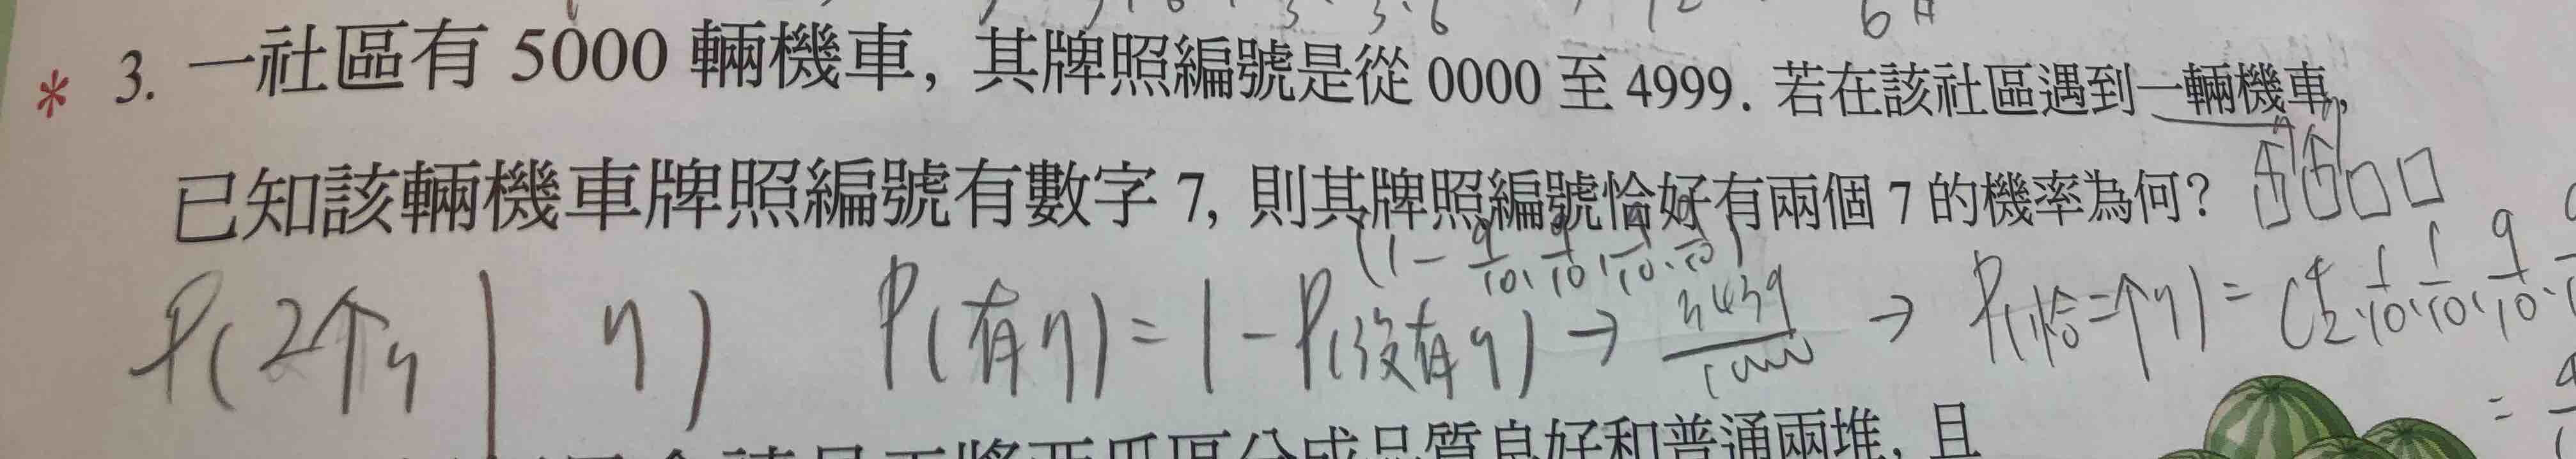 * 3. 一社區有 5000 輛機車, 其牌照編號是從 0000 至 4999. 若在該社區遇到一輛機車,
已知該輛機車牌照編號有數字 7, 則其牌照編號恰好有兩個 7 的機率為何?
(1 - 9/10 · 9/10 · 9/10 · 9/10)
P(2个7 | 7) P(有7) = 1 - P(沒有7) → 3439/10000 → P(恰二个7) = C⁴₂ · 1/10 · 1/10 · 9/10 ·